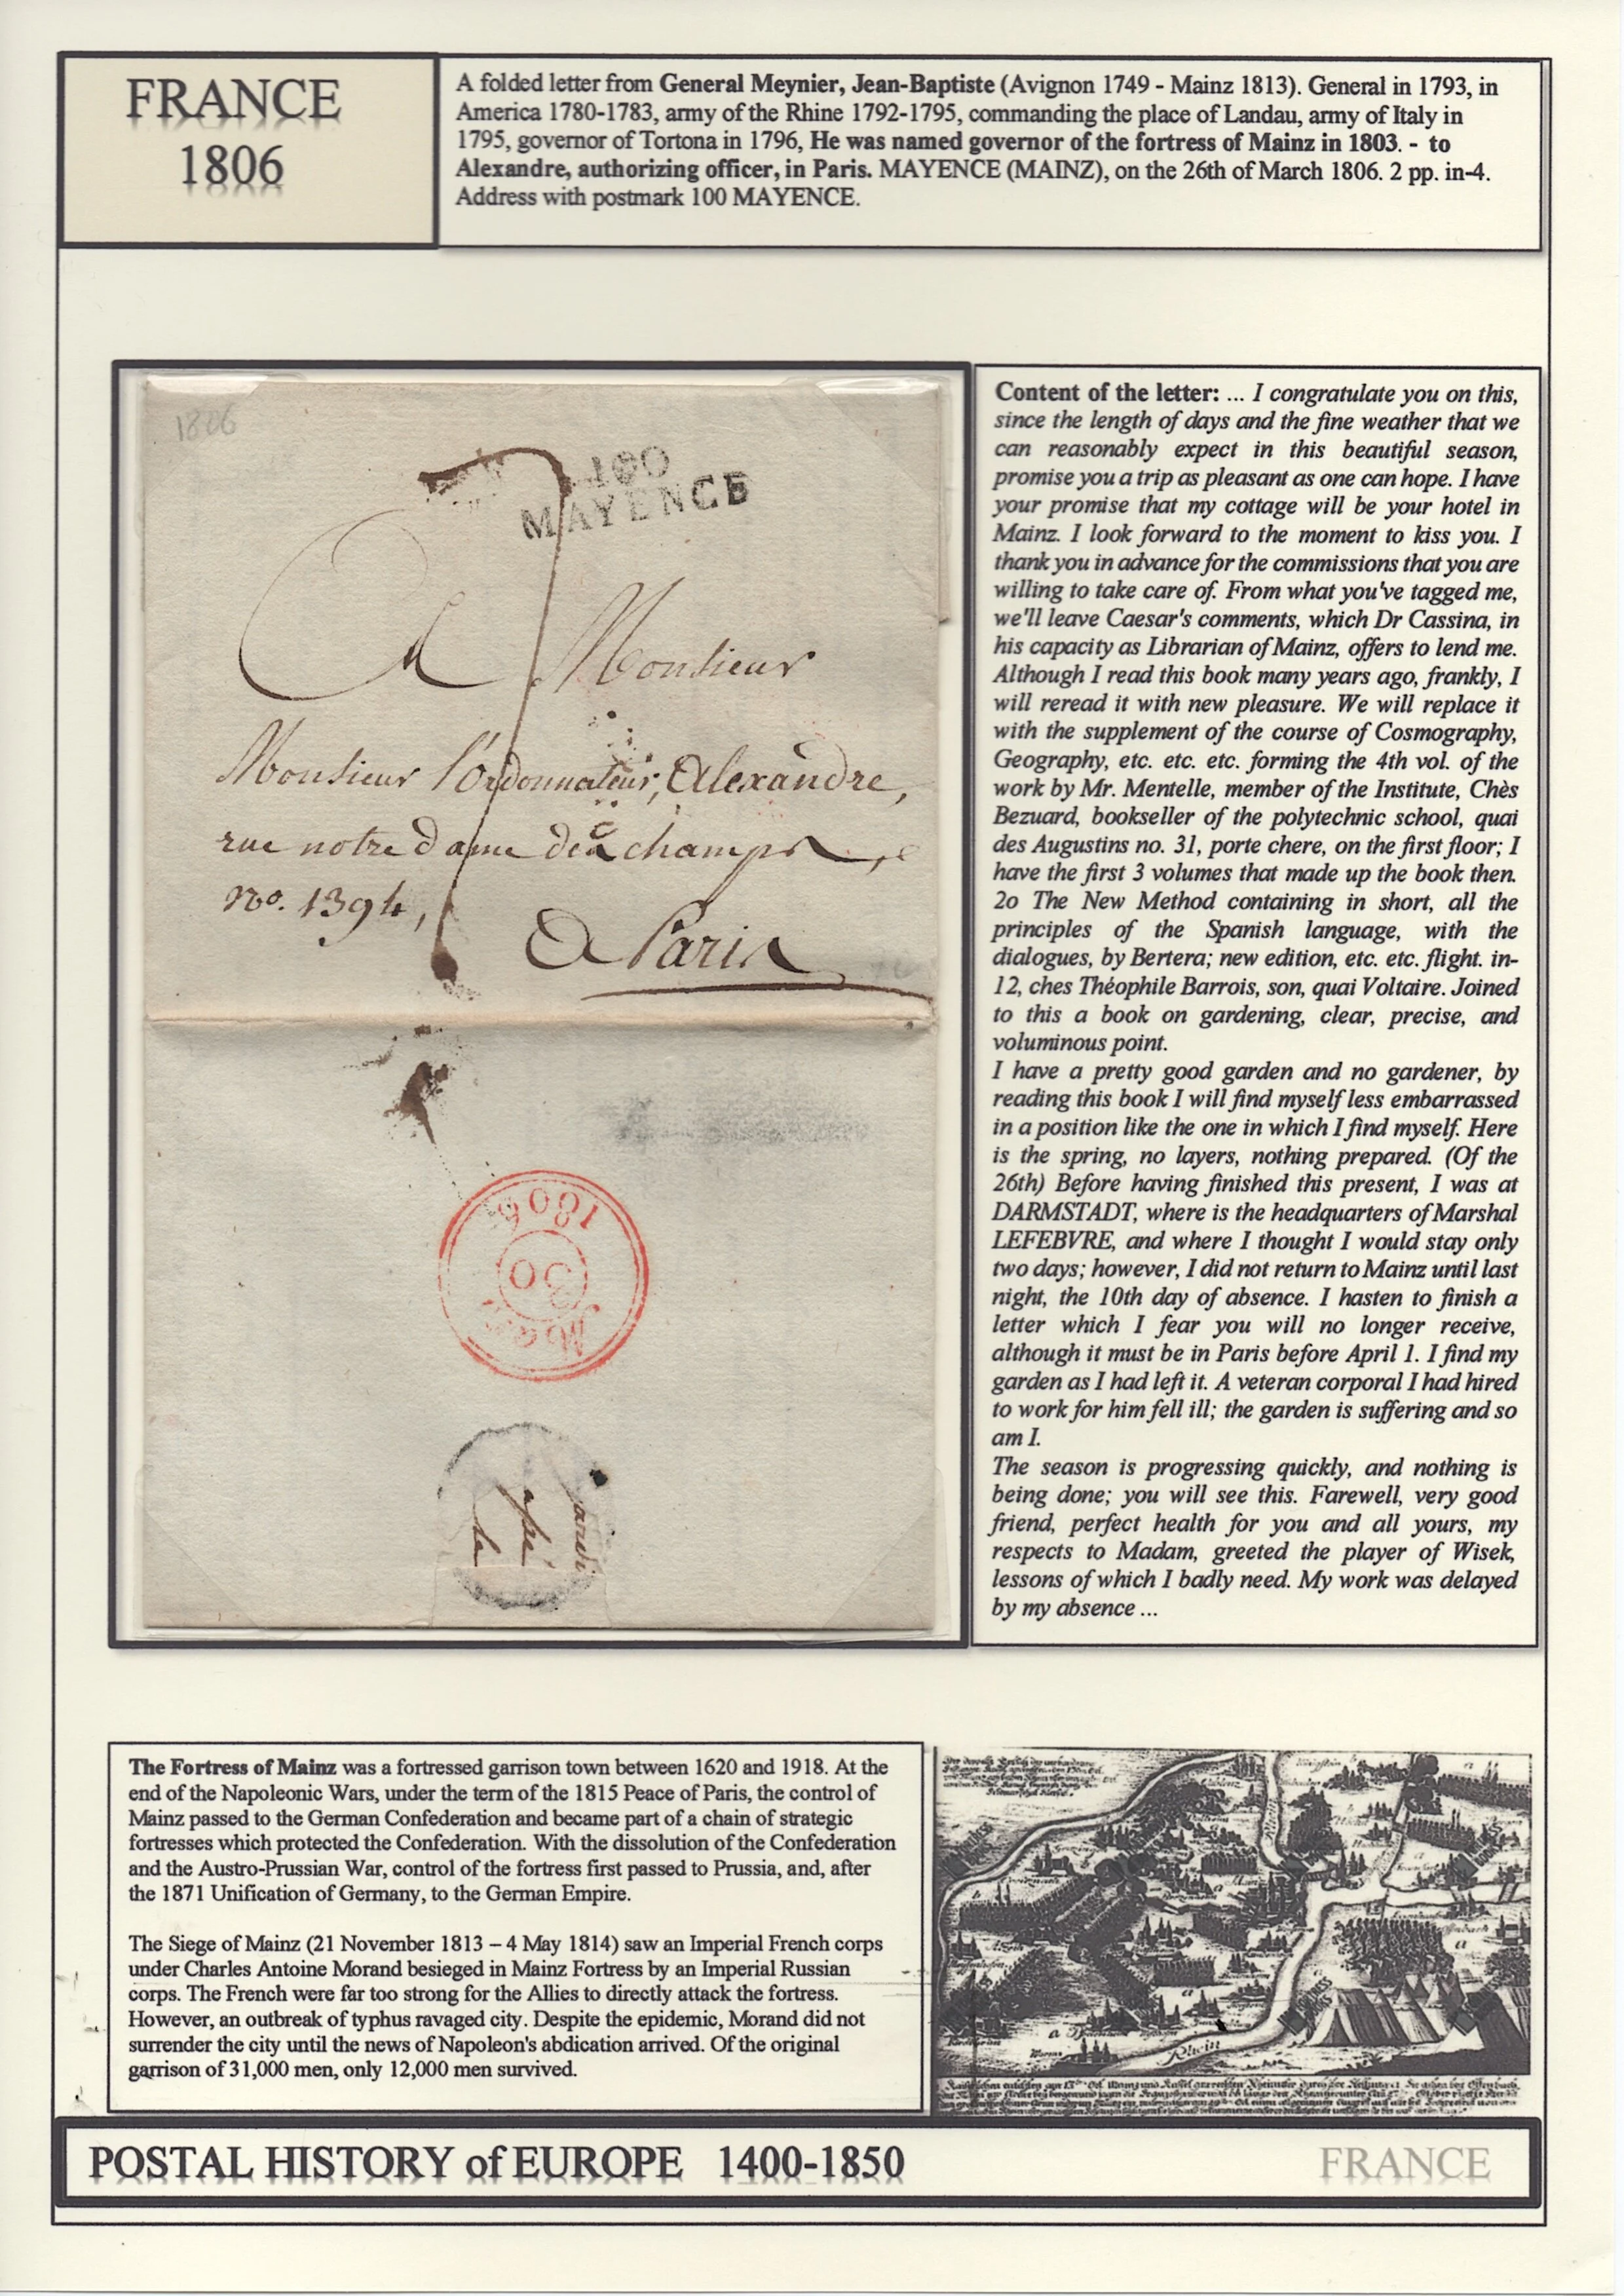 FRANCE
1806
A folded letter from General Meynier, Jean-Baptiste (Avignon 1749 - Mainz 1813). General in 1793, in
America 1780-1783, army of the Rhine 1792-1795, commanding the place of Landau, army of Italy in
1795, governor of Tortona in 1796, He was named governor of the fortress of Mainz in 1803. - to
Alexandre, authorizing officer, in Paris. MAYENCE (MAINZ), on the 26th of March 1806. 2 pp. in-4.
Address with postmark 100 MAYENCE.
1806
100
MAYENCE
7
A Monsieur
Monsieur l'Ordonnateur, Alexandre,
rue notre dame des champs,
no. 1394,
A Paris
1806
30
Content of the letter: ... I congratulate you on this,
since the length of days and the fine weather that we
can reasonably expect in this beautiful season,
promise you a trip as pleasant as one can hope. I have
your promise that my cottage will be your hotel in
Mainz. I look forward to the moment to kiss you. I
thank you in advance for the commissions that you are
willing to take care of. From what you've tagged me,
we'll leave Caesar's comments, which Dr Cassina, in
his capacity as Librarian of Mainz, offers to lend me.
Although I read this book many years ago, frankly, I
will reread it with new pleasure. We will replace it
with the supplement of the course of Cosmography,
Geography, etc. etc. etc. forming the 4th vol. of the
work by Mr. Mentelle, member of the Institute, Chès
Bezuard, bookseller of the polytechnic school, quai
des Augustins no. 31, porte chere, on the first floor; I
have the first 3 volumes that made up the book then.
2o The New Method containing in short, all the
principles of the Spanish language, with the
dialogues, by Bertera; new edition, etc. etc. flight. in-
12, ches Théophile Barrois, son, quai Voltaire. Joined
to this a book on gardening, clear, precise, and
voluminous point.
I have a pretty good garden and no gardener, by
reading this book I will find myself less embarrassed
in a position like the one in which I find myself. Here
is the spring, no layers, nothing prepared. (Of the
26th) Before having finished this present, I was at
DARMSTADT, where is the headquarters of Marshal
LEFEBVRE, and where I thought I would stay only
two days; however, I did not return to Mainz until last
night, the 10th day of absence. I hasten to finish a
letter which I fear you will no longer receive,
although it must be in Paris before April 1. I find my
garden as I had left it. A veteran corporal I had hired
to work for him fell ill; the garden is suffering and so
am I.
The season is progressing quickly, and nothing is
being done; you will see this. Farewell, very good
friend, perfect health for you and all yours, my
respects to Madam, greeted the player of Wisek,
lessons of which I badly need. My work was delayed
by my absence ...
The Fortress of Mainz was a fortressed garrison town between 1620 and 1918. At the
end of the Napoleonic Wars, under the term of the 1815 Peace of Paris, the control of
Mainz passed to the German Confederation and became part of a chain of strategic
fortresses which protected the Confederation. With the dissolution of the Confederation
and the Austro-Prussian War, control of the fortress first passed to Prussia, and, after
the 1871 Unification of Germany, to the German Empire.
The Siege of Mainz (21 November 1813 – 4 May 1814) saw an Imperial French corps
under Charles Antoine Morand besieged in Mainz Fortress by an Imperial Russian
corps. The French were far too strong for the Allies to directly attack the fortress.
However, an outbreak of typhus ravaged city. Despite the epidemic, Morand did not
surrender the city until the news of Napoleon's abdication arrived. Of the original
garrison of 31,000 men, only 12,000 men survived.
Rhein
POSTAL HISTORY of EUROPE 1400-1850
FRANCE